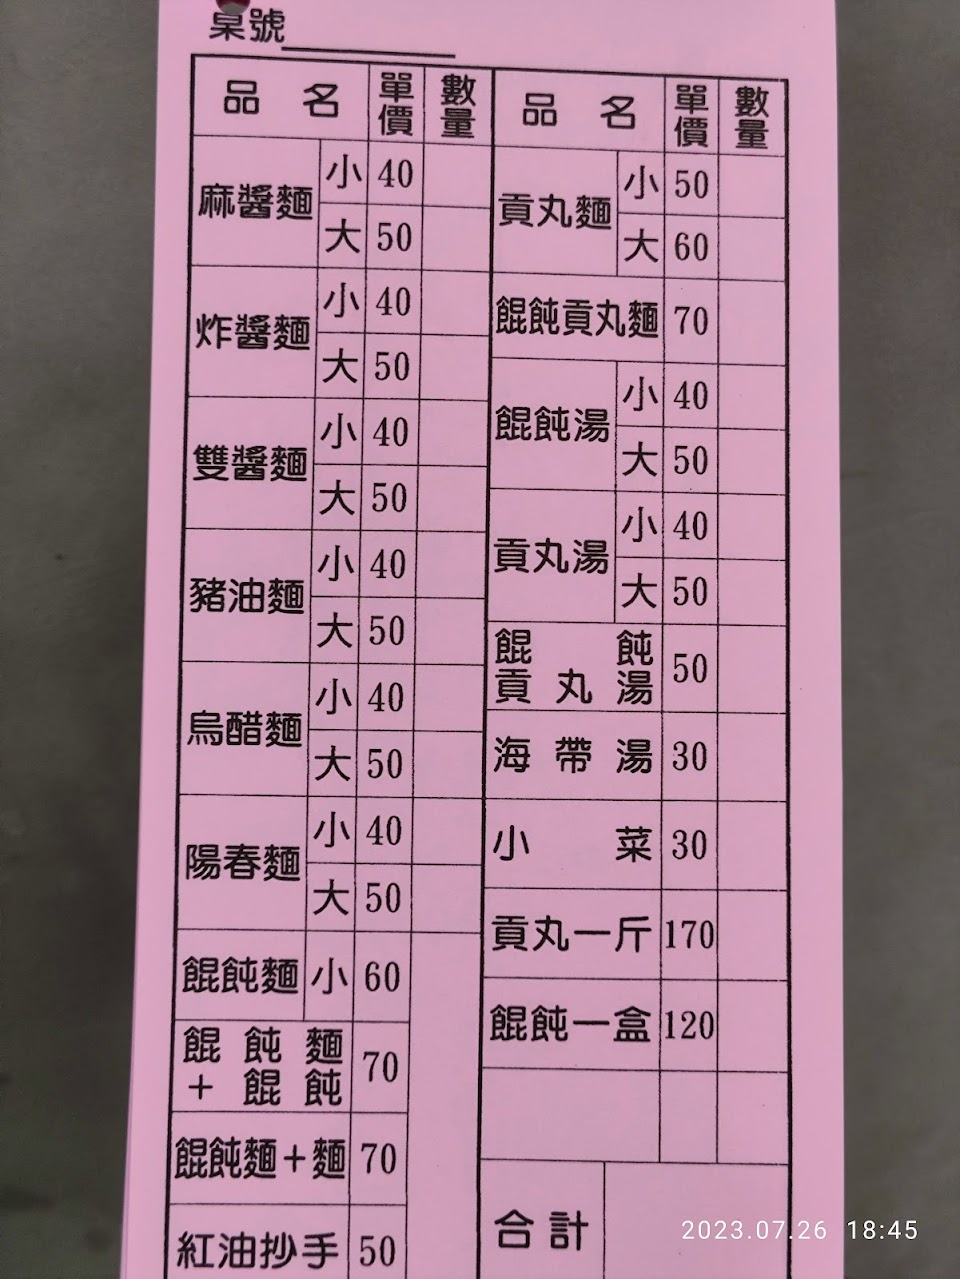 桌號
品 名 單價 數量
麻醬麵 小 40
大 50
炸醬麵 小 40
大 50
雙醬麵 小 40
大 50
豬油麵 小 40
大 50
烏醋麵 小 40
大 50
陽春麵 小 40
大 50
餛飩麵 小 60
餛飩麵
+餛飩 70
餛飩麵+麵 70
紅油抄手 50
品 名 單價 數量
貢丸麵 小 50
大 60
餛飩貢丸麵 70
餛飩湯 小 40
大 50
貢丸湯 小 40
大 50
餛飩
貢丸湯 50
海帶湯 30
小菜 30
貢丸一斤 170
餛飩一盒 120
合計
2023.07.26 18:45